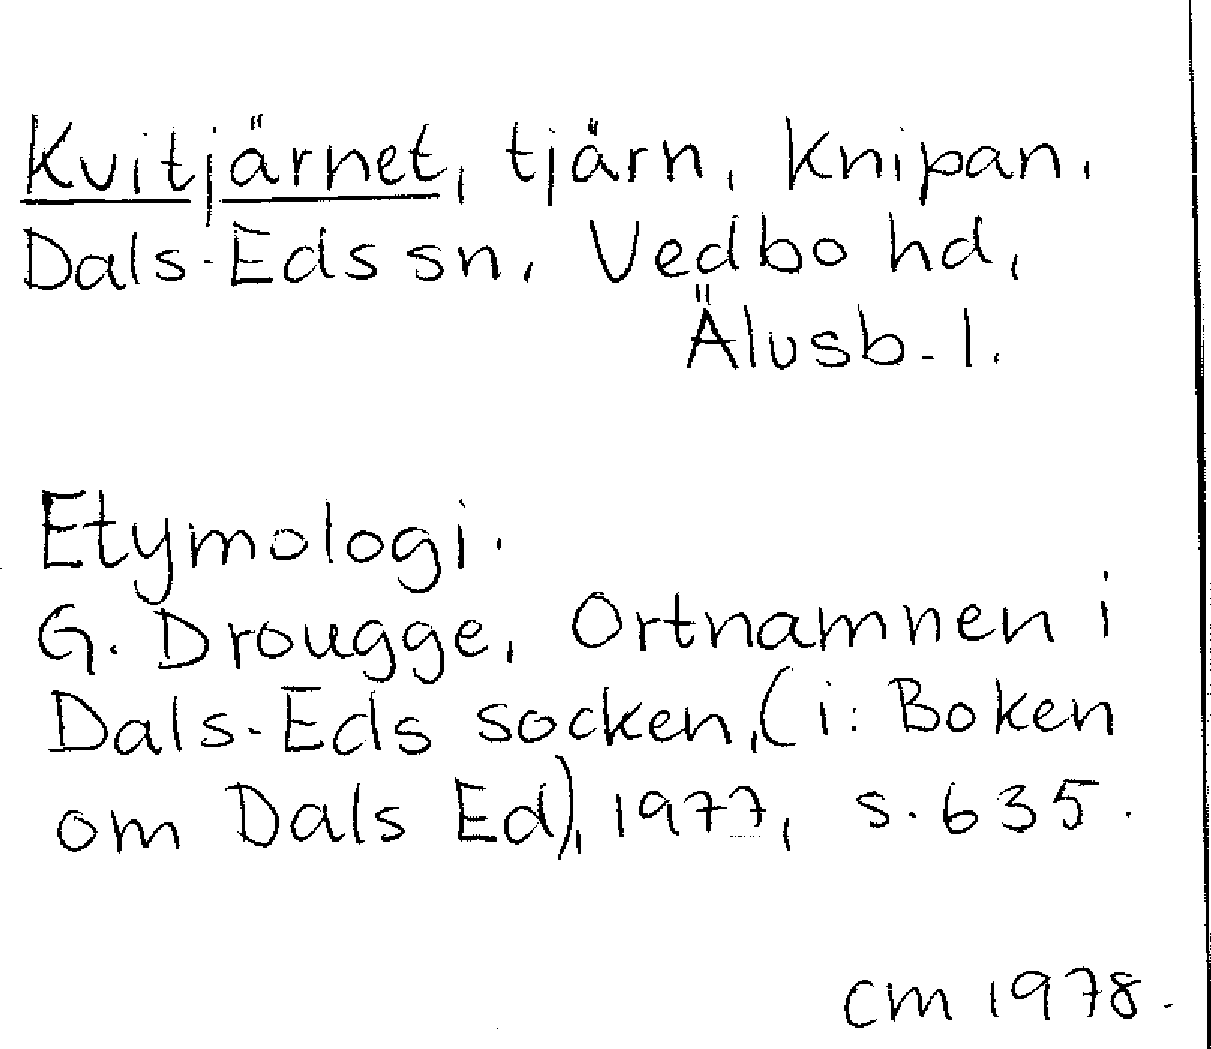 Kvitjärnet, tjärn, Knipan.
Dals-Eds sn, Vedbo hd,
Älvsb. l.
Etymologi.
G. Drougge, Ortnamnen i
Dals-Eds socken, (i: Boken
om Dals Ed), 1977, s. 635.
CM 1978.